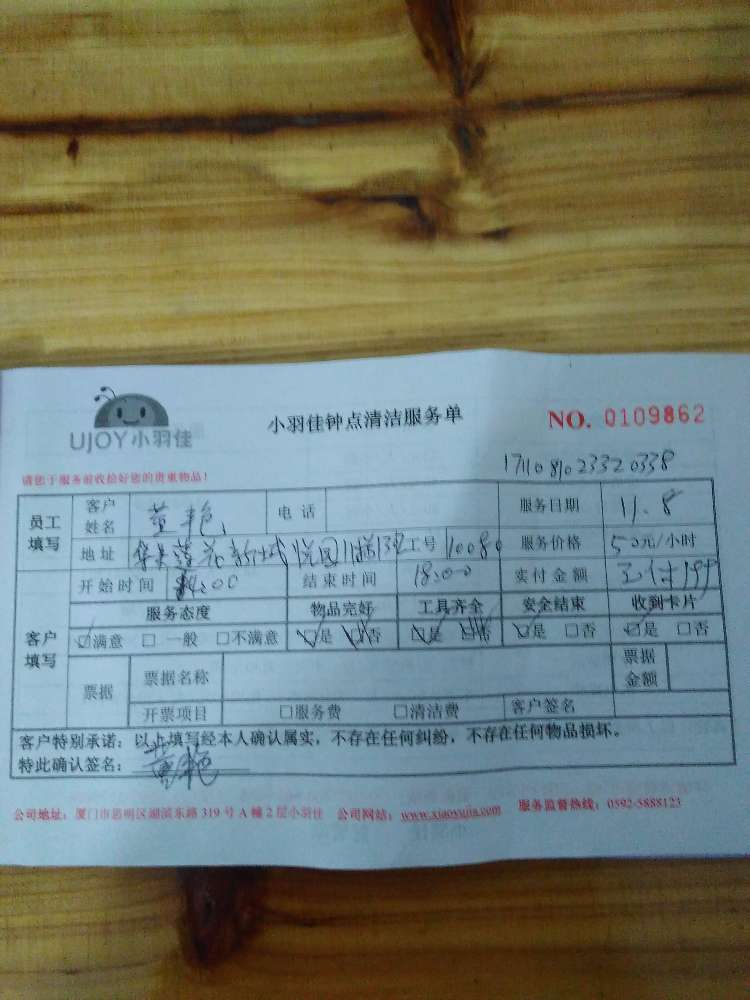 UJOY小羽佳
小羽佳钟点清洁服务单
NO. 0109862
1711081023320338
请您于服务前收拾好您的贵重物品!
员工填写 客户姓名 董艳 电话 服务日期 11.8
地址 莲花新城悦园11楼 工号 10080 服务价格 50元/小时
开始时间 14:00 结束时间 18:00 实付金额
客户填写 服务态度 物品完好 工具齐全 安全结束 收到卡片
☑满意 □一般 □不满意 ☑是 否 ☑是 否 ☑是 □否 ☑是 □否
票据 票据名称 票据金额
开票项目 □服务费 □清洁费 客户签名
客户特别承诺:以上填写经本人确认属实,不存在任何纠纷,不存在任何物品损坏。
特此确认签名: 董艳
公司地址:厦门市思明区湖滨东路319号A幢2层小羽佳 公司网站:www.xiaoyujia.com 服务监督热线:0592-5888123